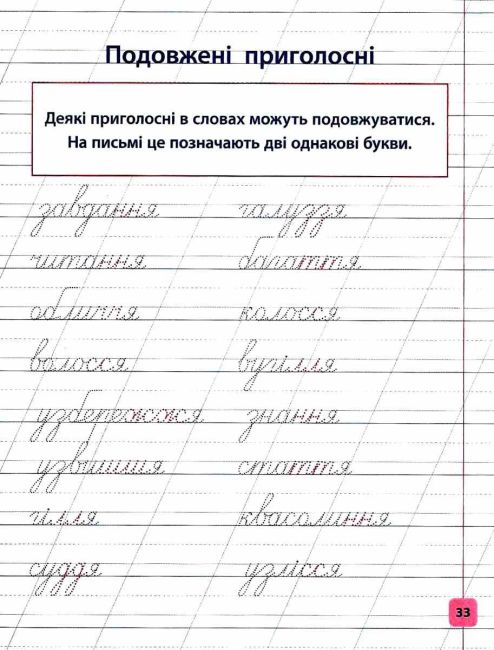 Подовжені приголосні
Деякі приголосні в словах можуть подовжуватися.
На письмі це позначають дві однакові букви.
завдання галуззя
читання багаття
обличчя колосся
волосся вугілля
узбережжя знання
узвишшя стаття
гілля квасолиння
суддя узлісся
33